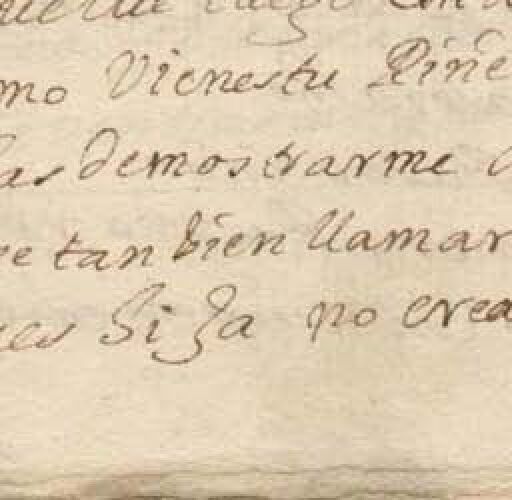 luego con
mo Vienes tu Piñe
las demostrarme
re tan bien llamar
ces hija no crea